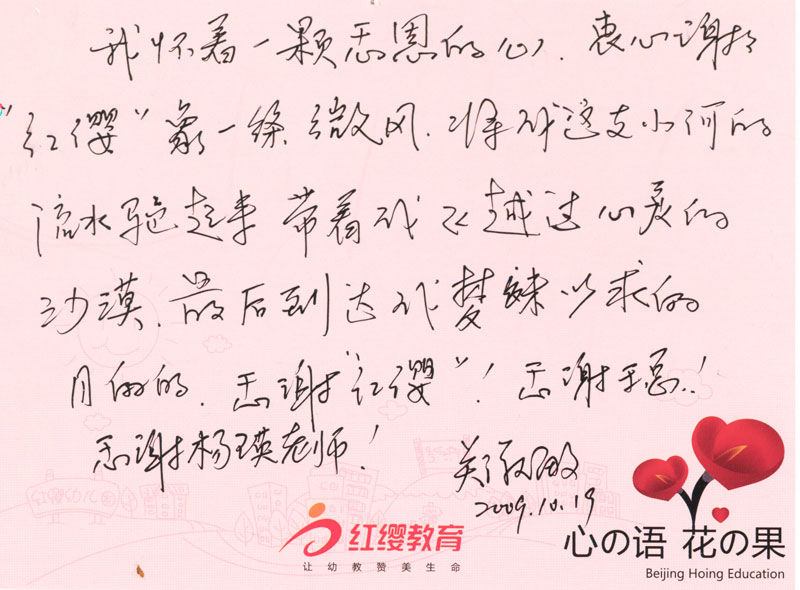 我怀着一颗感恩的心、衷心谢谢
"红缨"象一缕微风、将我这支小河的
流水卷起来带着我飞越过心灵的
沙漠、最后到达我梦寐以求的
目的的、感谢"红缨"！感谢王总！
感谢杨瑛老师！
郑敏
2009.10.19
红缨幼儿园
红缨教育
让幼教赞美生命
心の语 花の果
Beijing Hoing Education